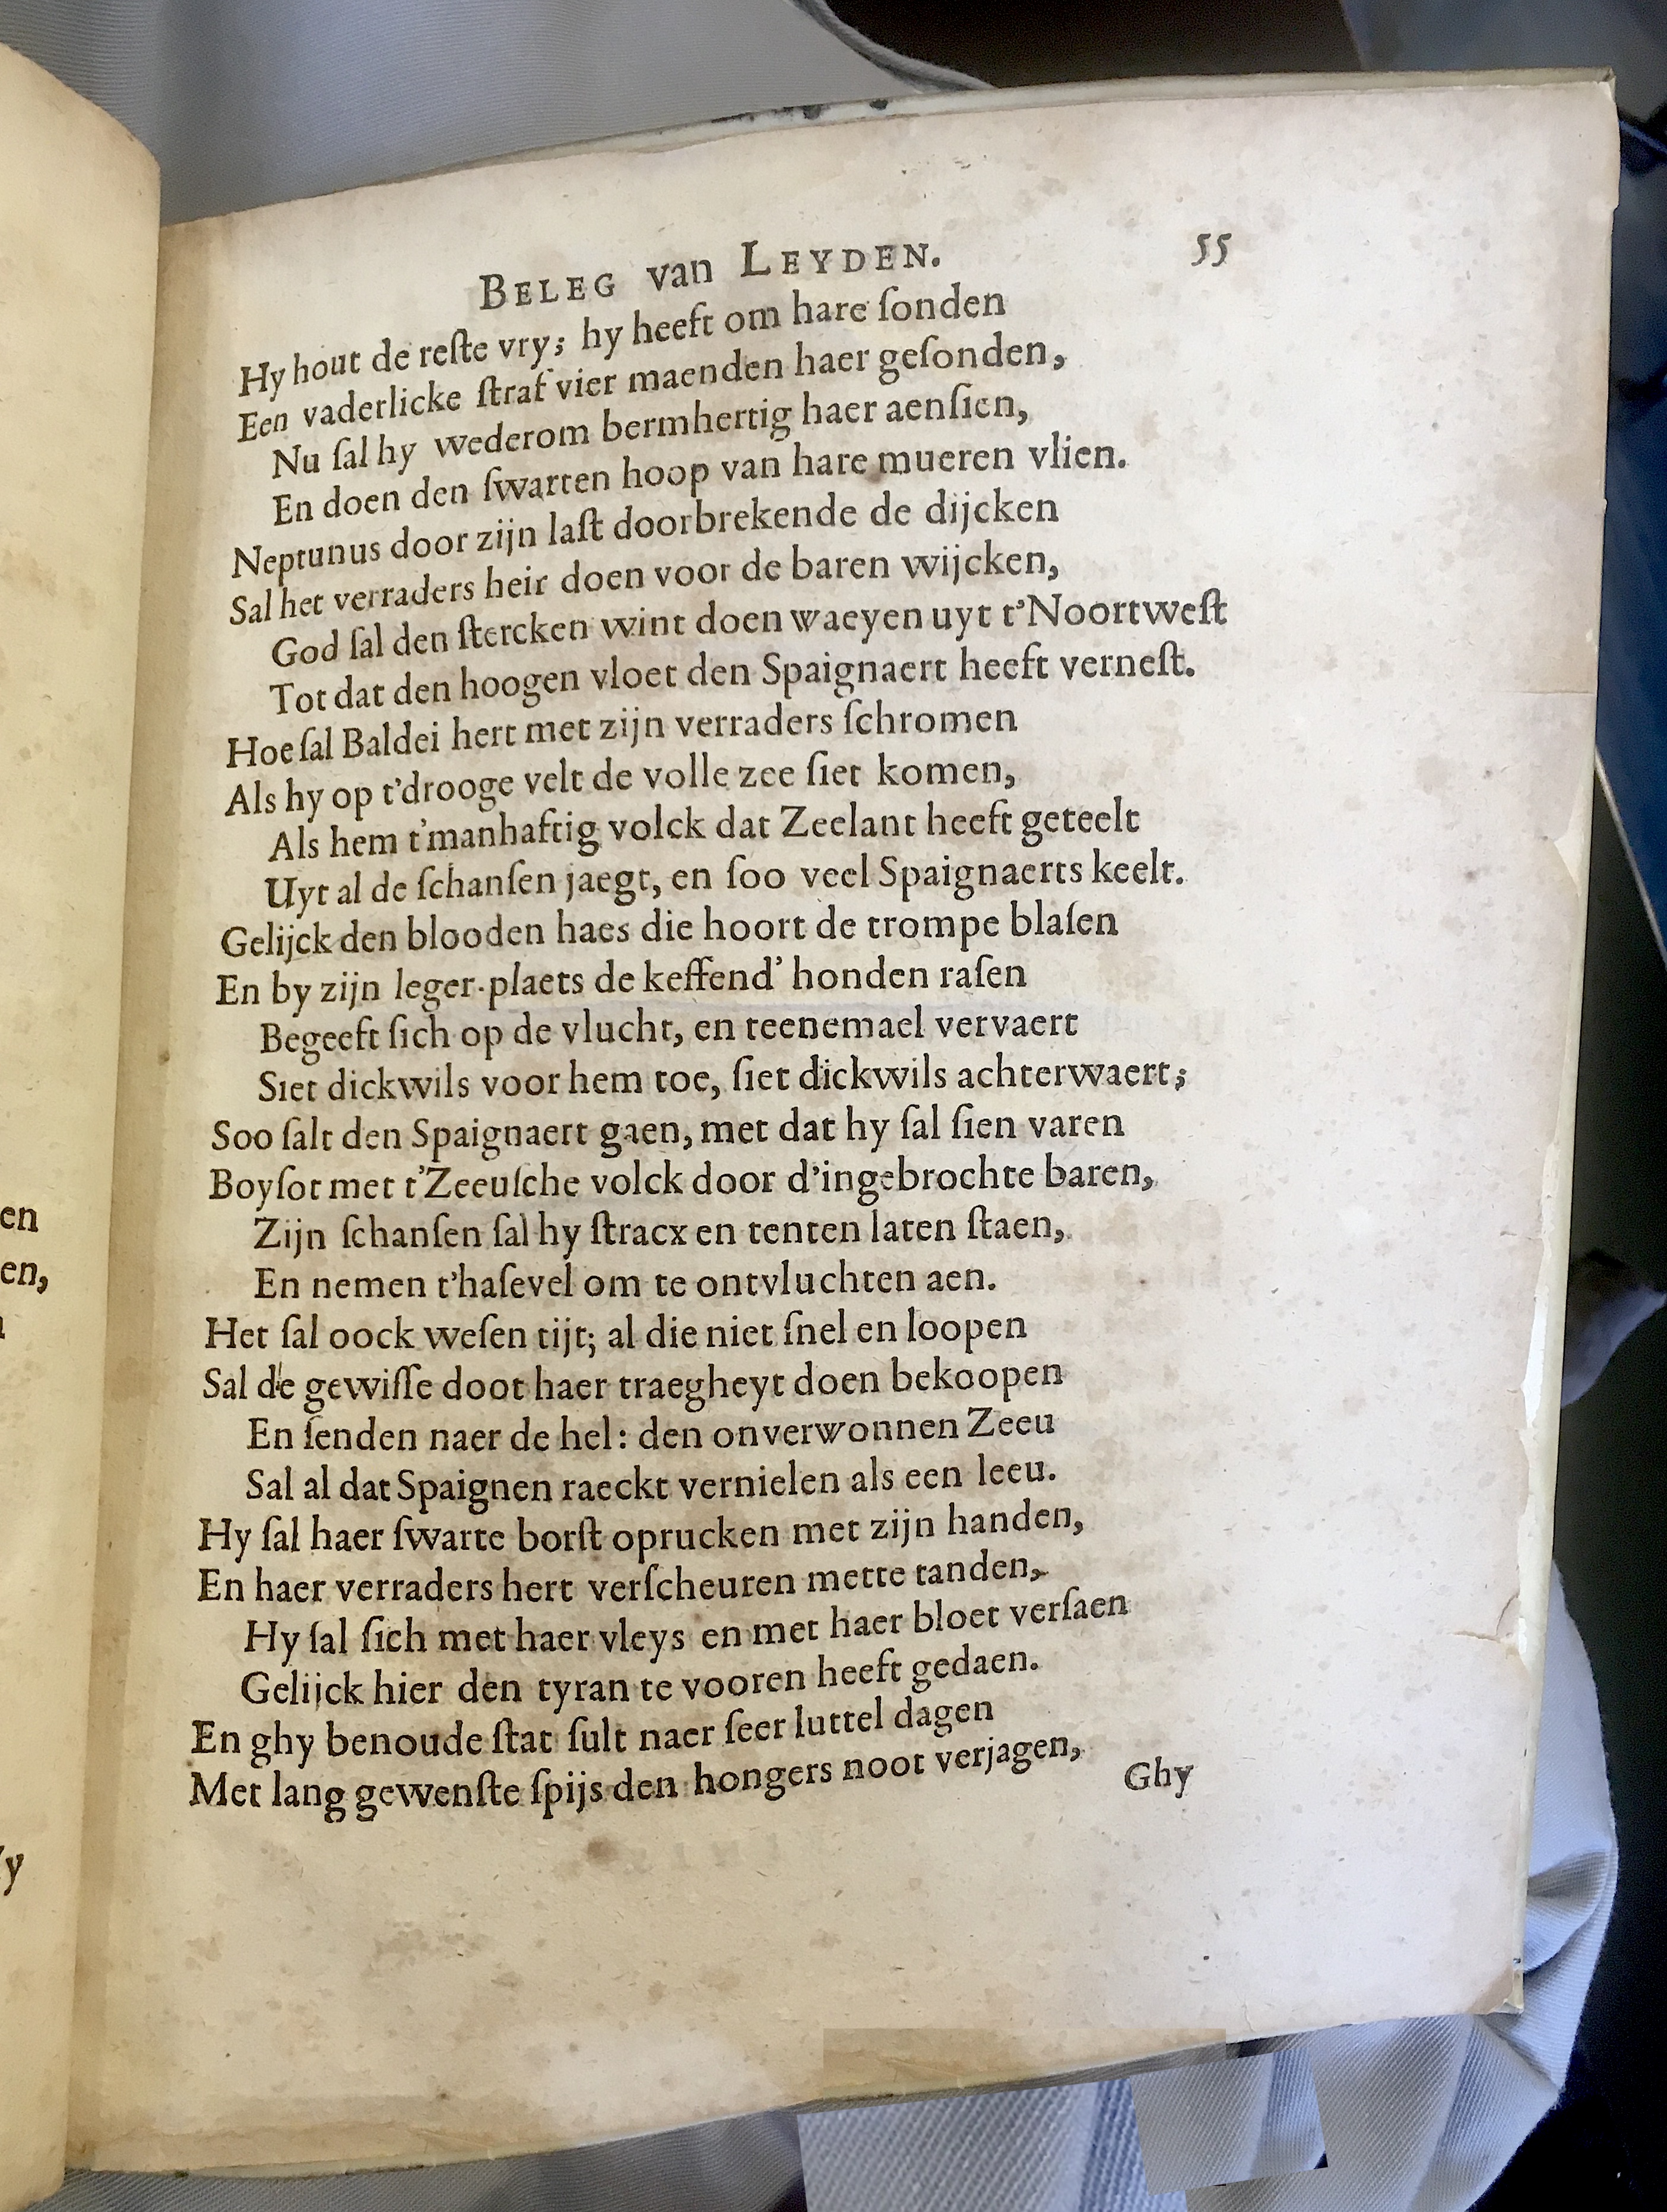 BELEG van LEYDEN. 55
Hy hout de reſte vry; hy heeft om hare ſonden
Een vaderlicke ſtraf vier maenden haer geſonden,
Nu ſal hy wederom bermhertig haer aenſien,
En doen den ſwarten hoop van hare mueren vlien.
Neptunus door zijn laſt doorbrekende de dijcken
Sal het verraders heir doen voor de baren wijcken,
God ſal den ſtercken wint doen waeyen uyt t'Noortweſt
Tot dat den hoogen vloet den Spaignaert heeft verneſt.
Hoe ſal Baldei hert met zijn verraders ſchromen
Als hy op t'drooge velt de volle zee ſiet komen,
Als hem t'manhaftig volck dat Zeelant heeft geteelt
Uyt al de ſchanſen jaegt, en ſoo veel Spaignaerts keelt.
Gelijck den blooden haes die hoort de trompe blaſen
En by zijn leger-plaets de keffend' honden raſen
Begeeft ſich op de vlucht, en teenemael vervaert
Siet dickwils voor hem toe, ſiet dickwils achterwaert;
Soo ſalt den Spaignaert gaen, met dat hy ſal ſien varen
Boyſot met t'Zeeuſche volck door d'ingebrochte baren,
Zijn ſchanſen ſal hy ſtracx en tenten laten ſtaen,
En nemen t'haſevel om te ontvluchten aen.
Het ſal oock weſen tijt; al die niet ſnel en loopen
Sal de gewiſſe doot haer traegheyt doen bekoopen
En ſenden naer de hel: den onverwonnen Zeeu
Sal al dat Spaignen raeckt vernielen als een leeu.
Hy ſal haer ſwarte borſt oprucken met zijn handen,
En haer verraders hert verſcheuren mette tanden,
Hy ſal ſich met haer vleys en met haer bloet verſaen
Gelijck hier den tyran te vooren heeft gedaen.
En ghy benoude ſtat ſult naer ſeer luttel dagen
Met lang gewenſte ſpijs den hongers noot verjagen,
Ghy
en
en,
y